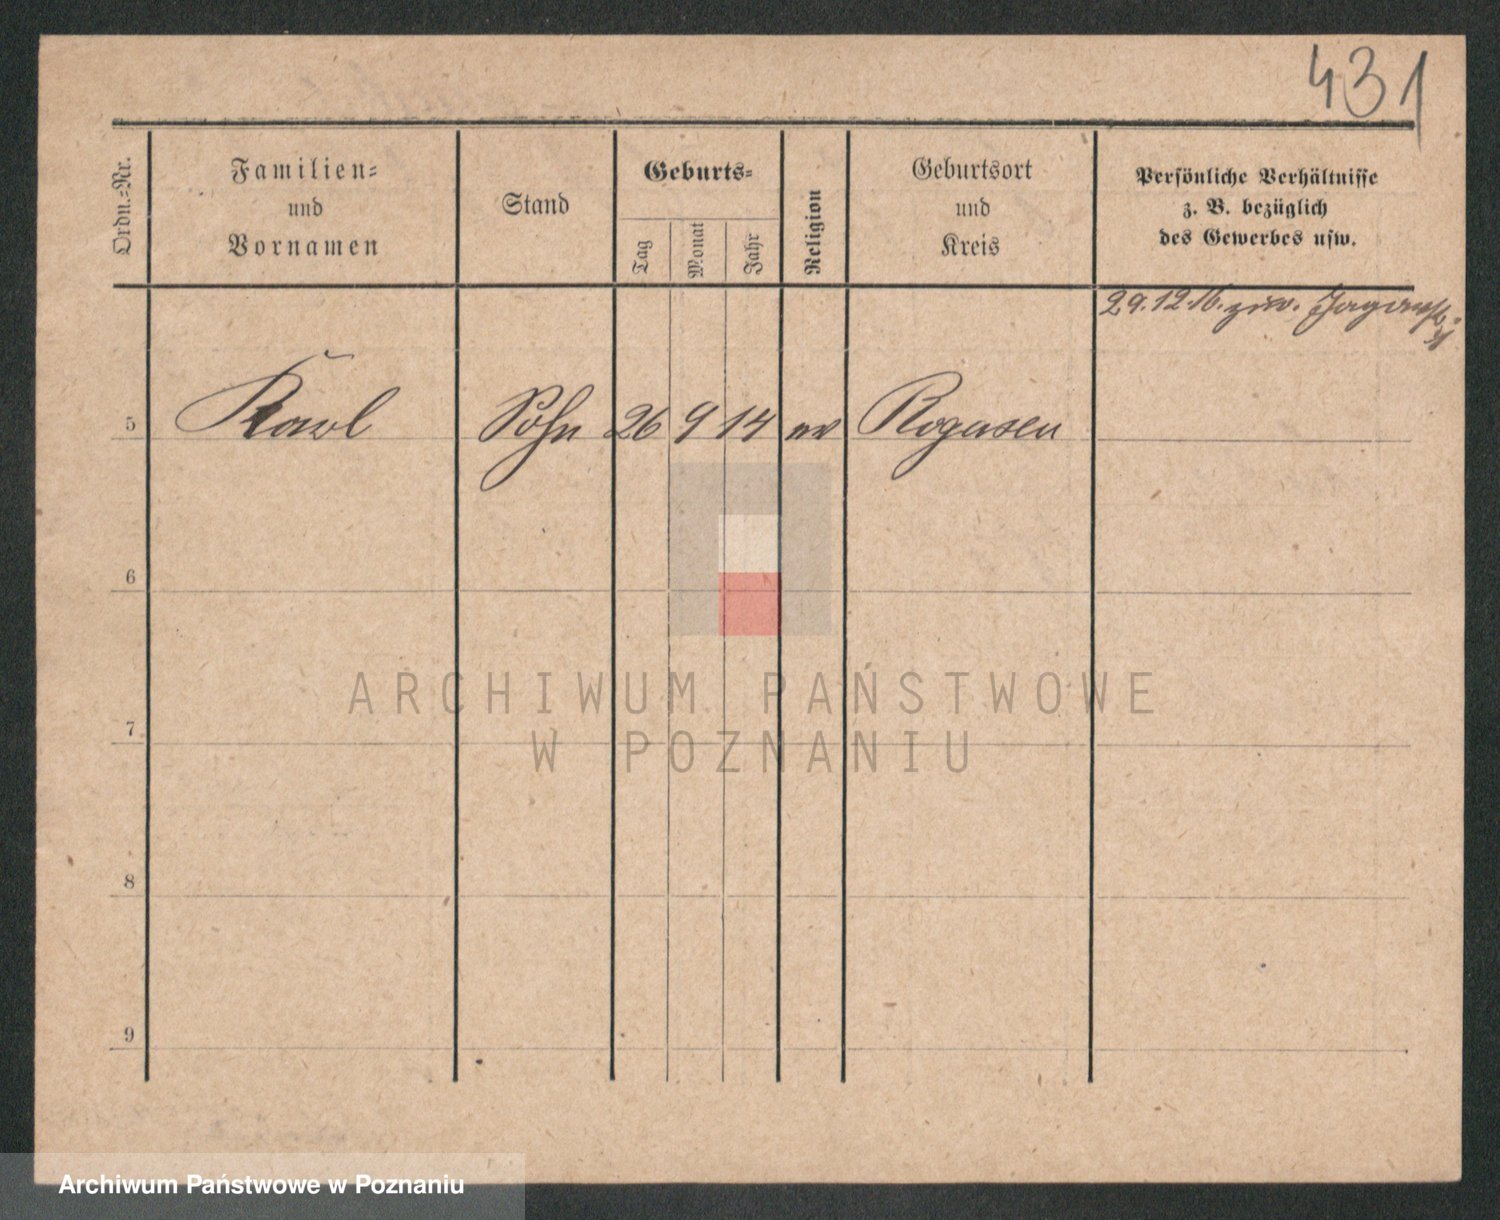 431
Ordn.-Nr.
Familien-
und
Vornamen
Stand
Geburts-
Tag
Monat
Jahr
Religion
Geburtsort
und
Kreis
Persönliche Verhältnisse
z. B. bezüglich
des Gewerbes usw.
29.12.16. zuw.
5 Karl Sohn 26 9 14 ev Rogasen
6
7
8
9
ARCHIWUM PAŃSTWOWE
W POZNANIU
Archiwum Państwowe w Poznaniu